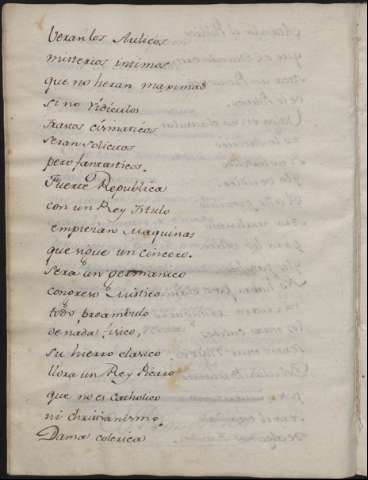 Veran los Aulicos
misterios intimos
que no heran maximas
si no ridiculos
Trastos cismaticos
seran solicitos
pero fantasticos.
Fuerte Republica
con un Rey Titulo
empiezan Maquinas
que sigue un
Sera un germanico
congreso Rustico
todo preambulo
de nada fisico,
su hierro clasico
llora un Rey
que no es catholico
ni christianismo,
Dama colerica